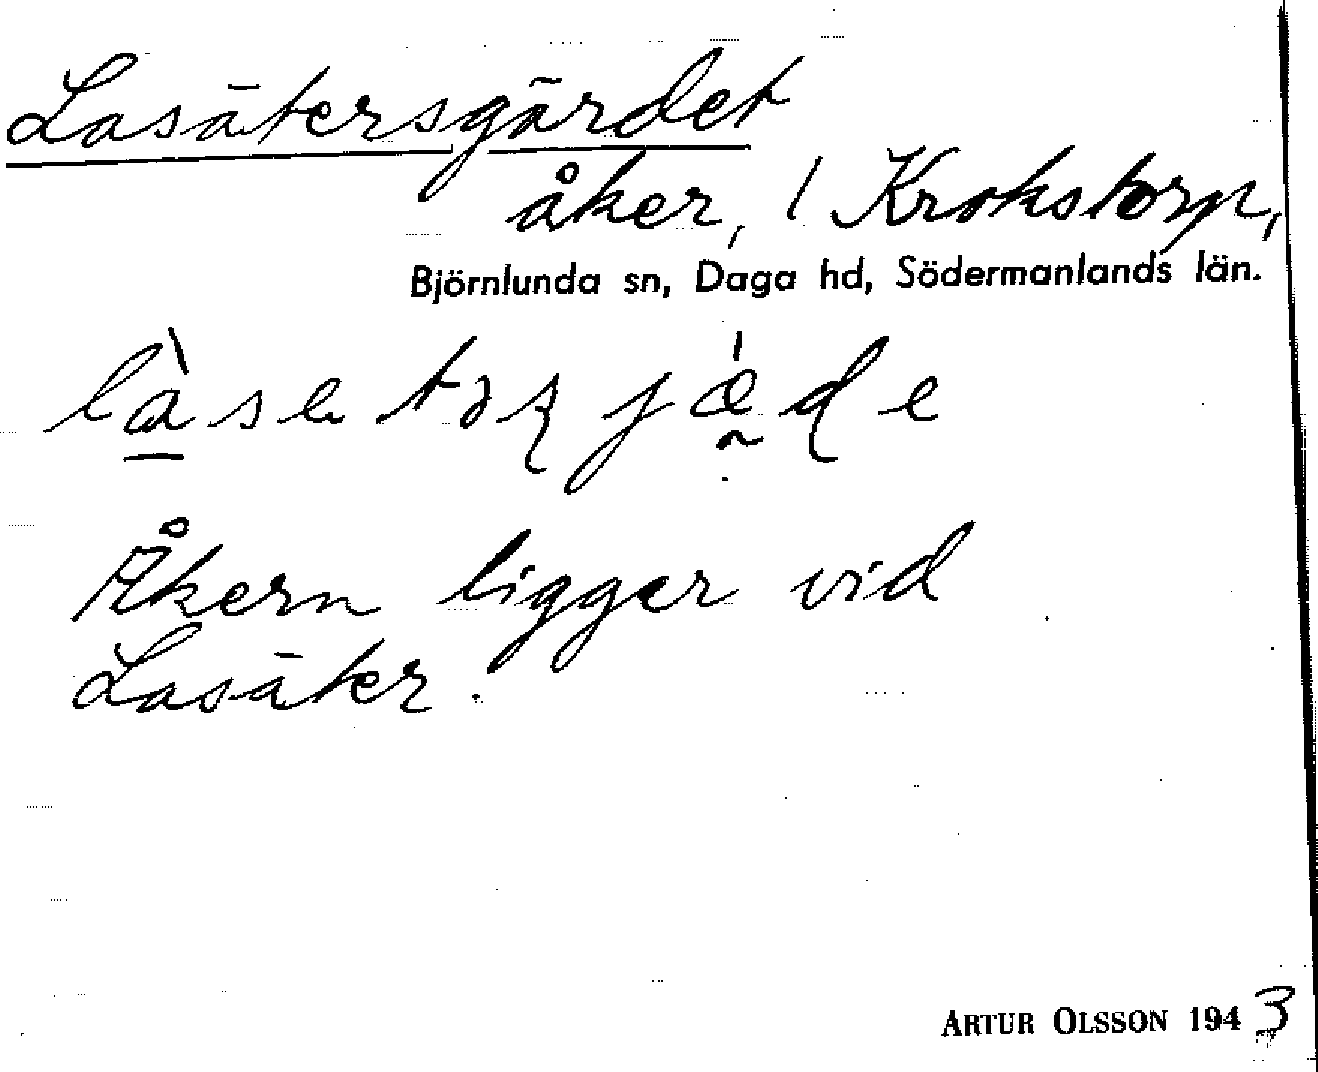 Lasätersgärdet
åker, / Krokstorp,
Björnlunda sn, Daga hd, Södermanlands län.
Åkern ligger vid
Lasäter.
ARTUR OLSSON 1943